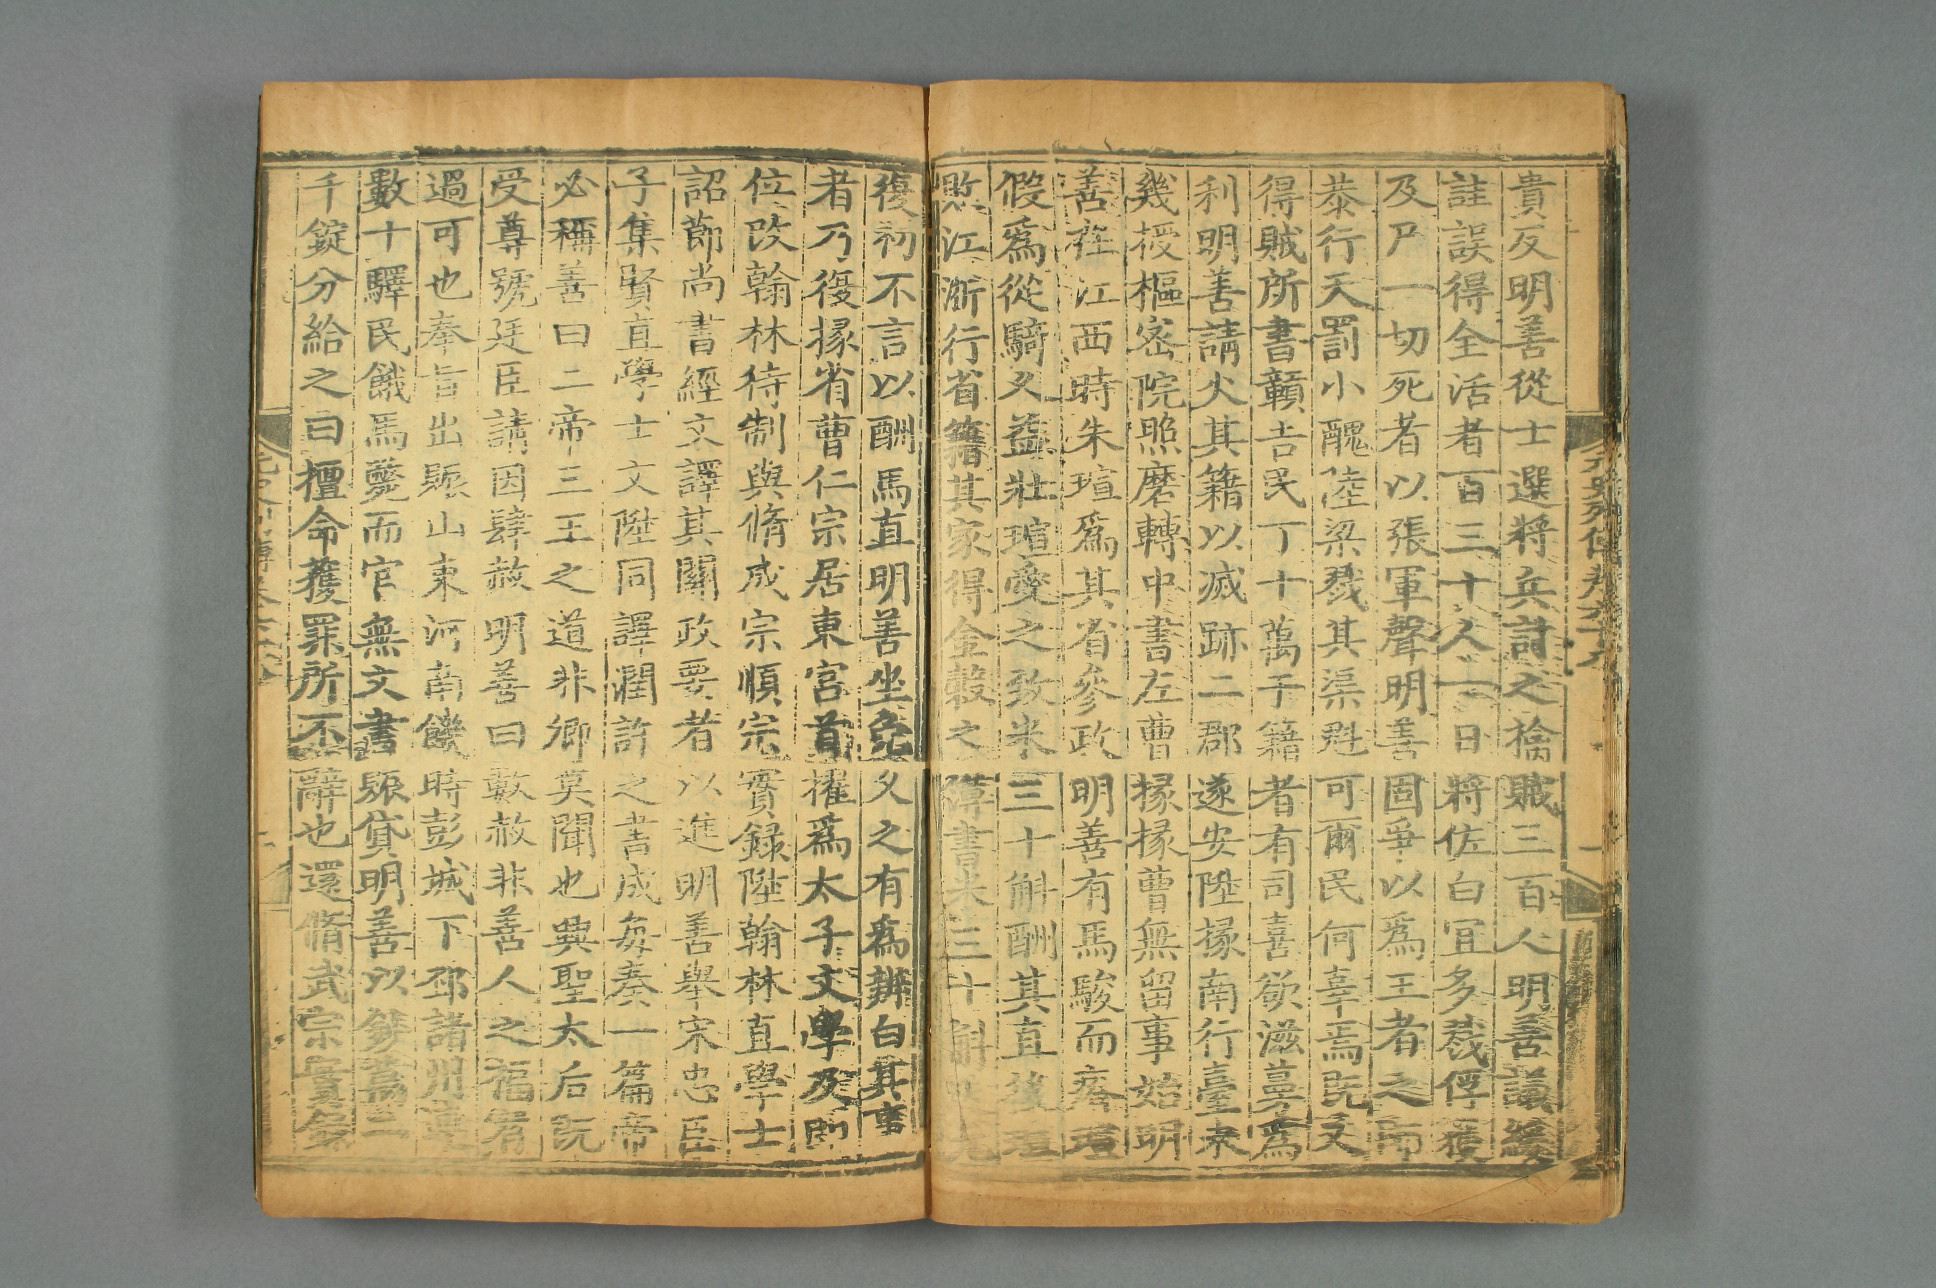 貴反明善從士選將兵討之擒賊三百人明善議緩
詿誤得全活者百三十人一日將佐白宜多戮俘獲
及尸一切死者以張軍聲明善固爭以爲王者之師
恭行天罰小醜陸梁戮其渠魁可爾民何辜焉既又
得賊所書贛吉民丁十萬于籍者有司喜欲滋蔓爲
利明善請火其籍以滅跡二郡遂安陞掾南行臺未
幾授樞密院照磨轉中書左曹掾掾曹無留事始明
善在江西時朱瑄爲其省參政明善有馬駿而瘠瑄
假爲從騎久益壯瑄愛之致米三十斛酬其直後瑄
敗江浙行省籍其家得金穀之簿書米三十斛送元
復初不言以酬馬直明善坐免久之有爲辨白其事
者乃復掾省曹仁宗居東宮首擢爲太子文學及即
位改翰林待制與脩成宗順宗實錄陞翰林直學士
詔節尚書經文譯其關政要者以進明善舉宋忠臣
子集賢直學士文陞同譯潤許之書成每奏一篇帝
必稱善曰二帝三王之道非卿莫聞也興聖太后既
受尊號廷臣請因肆赦明善曰數赦非善人之福宥
過可也奉旨出賑山東河南饑時彭城下邳諸州連
數十驛民餓馬斃而官無文書賑貸明善以鈔萬二
千錠分給之曰擅命獲罪所不辭也還脩武宗實錄